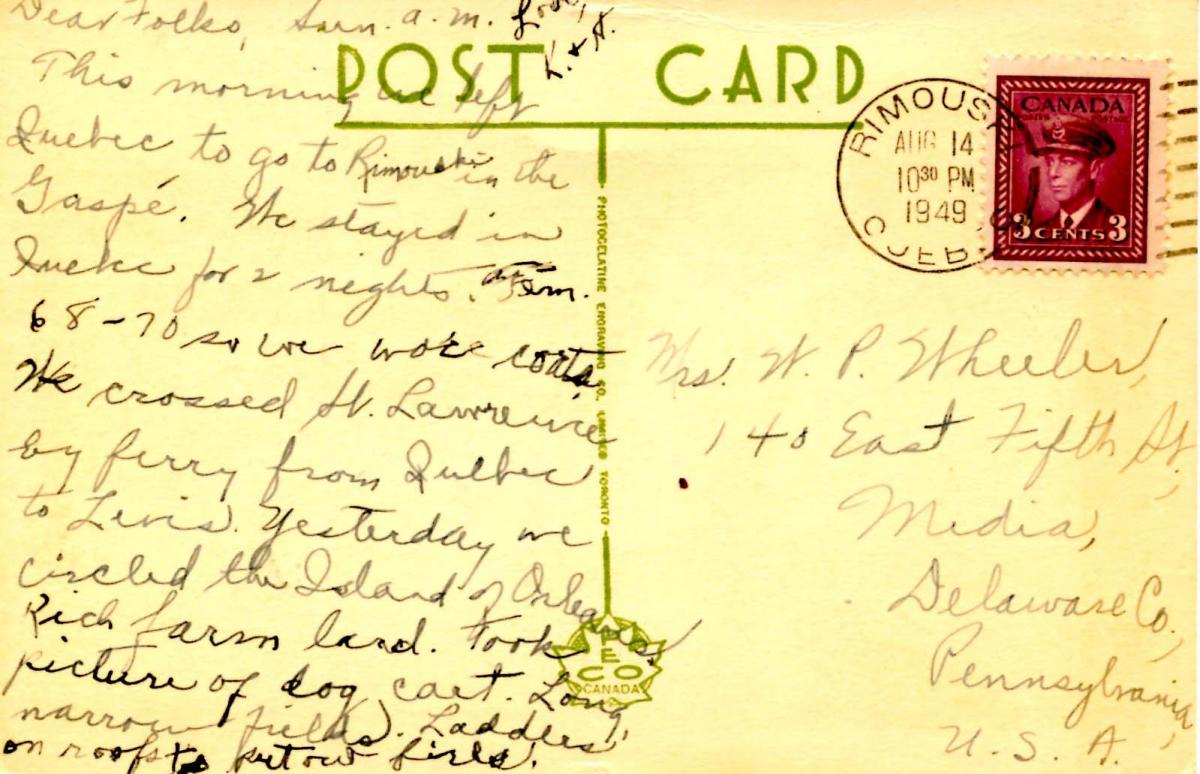 Dear Folks, Sun. a.m.
Love,
K. & A.
POST CARD
This morning we left
Quebec to go to Rimouski in the
Gaspé. We stayed in
Quebec for 2 nights. Tem.
68-70 so we wore coats.
We crossed St. Lawrence
by ferry from Quebec
to Levis. Yesterday we
circled the Island of Orleans.
Rich farm land. Took
picture of dog cart. Long,
narrow fields. Ladders
on roofs to put out fires.
PHOTOGELATINE ENGRAVING CO. LIMITED TORONTO
PECO
CANADA
RIMOUSKI
AUG 14
1030 PM
1949
QUEBEC
CANADA
POSTES POSTAGE
3 CENTS 3
Mrs. W. P. Wheeler,
140 East Fifth St.,
Media,
Delaware Co.,
Pennsylvania,
U. S. A.